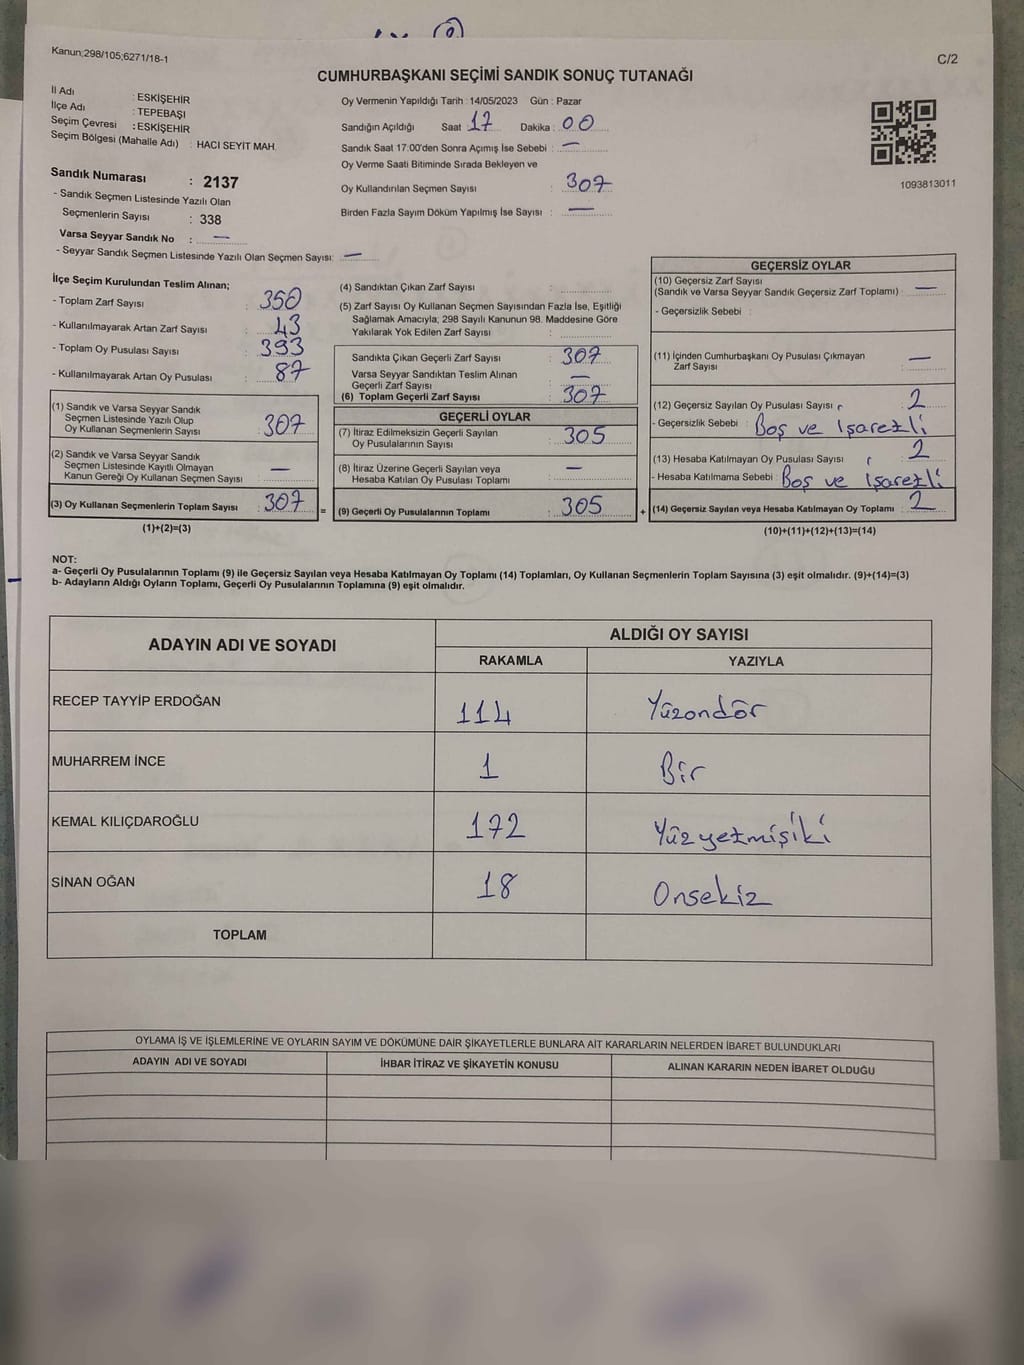 Kanun;298/105;6271/18-1
C/2
CUMHURBAŞKANI SEÇİMİ SANDIK SONUÇ TUTANAĞI
İl Adı : ESKİŞEHİR
İlçe Adı : TEPEBAŞI
Seçim Çevresi : ESKİŞEHİR
Seçim Bölgesi (Mahalle Adı) : HACI SEYİT MAH.
Sandık Numarası : 2137
- Sandık Seçmen Listesinde Yazılı Olan
Seçmenlerin Sayısı : 338
Varsa Seyyar Sandık No : —
- Seyyar Sandık Seçmen Listesinde Yazılı Olan Seçmen Sayısı: —
Oy Vermenin Yapıldığı Tarih : 14/05/2023 Gün : Pazar
Sandığın Açıldığı Saat 17 Dakika : 00
Sandık Saat 17:00'den Sonra Açımış İse Sebebi : —
Oy Verme Saati Bitiminde Sırada Bekleyen ve
Oy Kullandırılan Seçmen Sayısı : 307
Birden Fazla Sayım Döküm Yapılmış İse Sayısı : —
1093813011
İlçe Seçim Kurulundan Teslim Alınan;
- Toplam Zarf Sayısı : 350
- Kullanılmayarak Artan Zarf Sayısı : 43
- Toplam Oy Pusulası Sayısı : 393
- Kullanılmayarak Artan Oy Pusulası : 87
(1) Sandık ve Varsa Seyyar Sandık
Seçmen Listesinde Yazılı Olup
Oy Kullanan Seçmenlerin Sayısı : 307
(2) Sandık ve Varsa Seyyar Sandık
Seçmen Listesinde Kayıtlı Olmayan
Kanun Gereği Oy Kullanan Seçmen Sayısı : —
(3) Oy Kullanan Seçmenlerin Toplam Sayısı : 307
(1)+(2)=(3)
=
(4) Sandıktan Çıkan Zarf Sayısı :
(5) Zarf Sayısı Oy Kullanan Seçmen Sayısından Fazla İse, Eşitliği
Sağlamak Amacıyla; 298 Sayılı Kanunun 98. Maddesine Göre
Yakılarak Yok Edilen Zarf Sayısı :
Sandıkta Çıkan Geçerli Zarf Sayısı : 307
Varsa Seyyar Sandıktan Teslim Alınan
Geçerli Zarf Sayısı : —
(6) Toplam Geçerli Zarf Sayısı : 307
GEÇERLİ OYLAR
(7) İtiraz Edilmeksizin Geçerli Sayılan
Oy Pusulalarının Sayısı : 305
(8) İtiraz Üzerine Geçerli Sayılan veya
Hesaba Katılan Oy Pusulası Toplamı : —
(9) Geçerli Oy Pusulalarının Toplamı : 305
+
GEÇERSİZ OYLAR
(10) Geçersiz Zarf Sayısı
(Sandık ve Varsa Seyyar Sandık Geçersiz Zarf Toplamı) : —
- Geçersizlik Sebebi :
(11) İçinden Cumhurbaşkanı Oy Pusulası Çıkmayan
Zarf Sayısı : —
(12) Geçersiz Sayılan Oy Pusulası Sayısı : 2
- Geçersizlik Sebebi : Boş ve İşaretli
(13) Hesaba Katılmayan Oy Pusulası Sayısı : 2
- Hesaba Katılmama Sebebi : Boş ve İşaretli
(14) Geçersiz Sayılan veya Hesaba Katılmayan Oy Toplamı : 2
(10)+(11)+(12)+(13)=(14)
NOT:
a- Geçerli Oy Pusulalarının Toplamı (9) ile Geçersiz Sayılan veya Hesaba Katılmayan Oy Toplamı (14) Toplamları, Oy Kullanan Seçmenlerin Toplam Sayısına (3) eşit olmalıdır. (9)+(14)=(3)
b- Adayların Aldığı Oyların Toplamı, Geçerli Oy Pusulalarının Toplamına (9) eşit olmalıdır.
ADAYIN ADI VE SOYADI
ALDIĞI OY SAYISI
RAKAMLA YAZIYLA
RECEP TAYYİP ERDOĞAN 114 Yüzondör
MUHARREM İNCE 1 Bir
KEMAL KILIÇDAROĞLU 172 Yüzyetmişiki
SİNAN OĞAN 18 Onsekiz
TOPLAM
OYLAMA İŞ VE İŞLEMLERİNE VE OYLARIN SAYIM VE DÖKÜMÜNE DAİR ŞİKAYETLERLE BUNLARA AİT KARARLARIN NELERDEN İBARET BULUNDUKLARI
ADAYIN ADI VE SOYADI İHBAR İTİRAZ VE ŞİKAYETİN KONUSU ALINAN KARARIN NEDEN İBARET OLDUĞU